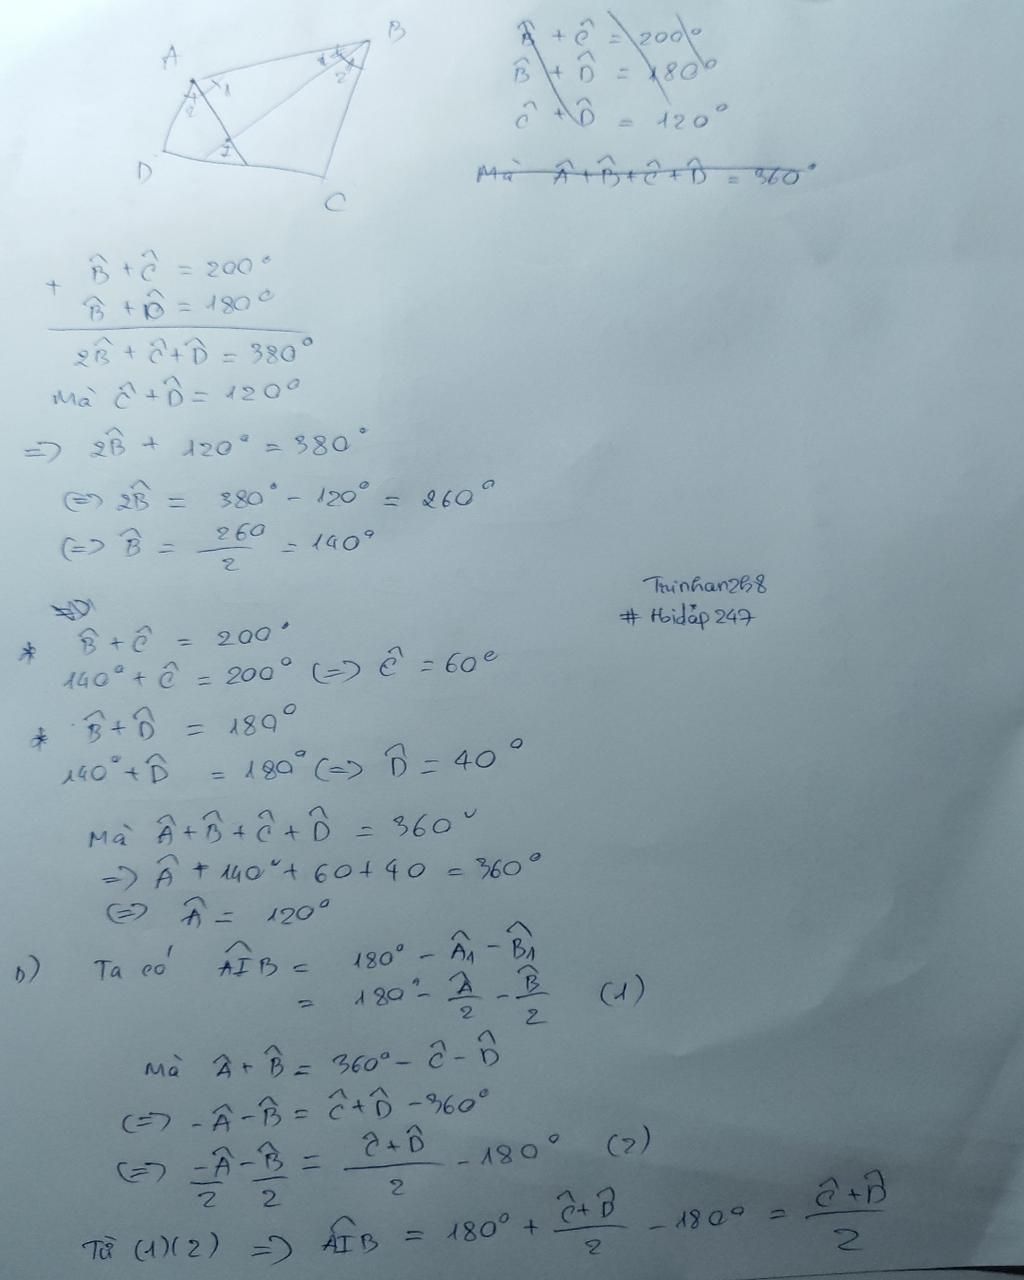 A
B
1
2
1
2
I
D
C
B̂ + Ĉ = 200°
B̂ + D̂ = 180°
Ĉ + D̂ = 120°
Mà Â + B̂ + Ĉ + D̂ = 360°
+ B̂ + Ĉ = 200°
B̂ + D̂ = 180°
2B̂ + Ĉ + D̂ = 380°
Mà Ĉ + D̂ = 120°
=> 2B̂ + 120° = 380°
(=> 2B̂ = 380° - 120° = 260°
(=> B̂ = 260/2 = 140°
Trinhan258
# Hoidap247
* B̂ + Ĉ = 200°
140° + Ĉ = 200° (=> Ĉ = 60°
* B̂ + D̂ = 180°
140° + D̂ = 180° (=> D̂ = 40°
Mà Â + B̂ + Ĉ + D̂ = 360°
=> Â + 140° + 60 + 40 = 360°
(=> Â = 120°
b) Ta có AIB̂ = 180° - Â1 - B̂1
= 180° - Â/2 - B̂/2 (1)
Mà Â + B̂ = 360° - Ĉ - D̂
(=> -Â - B̂ = Ĉ + D̂ - 360°
(=> -Â/2 - B̂/2 = (Ĉ + D̂)/2 - 180° (2)
Từ (1)(2) => AIB̂ = 180° + (Ĉ + D̂)/2 - 180° = (Ĉ + D̂)/2